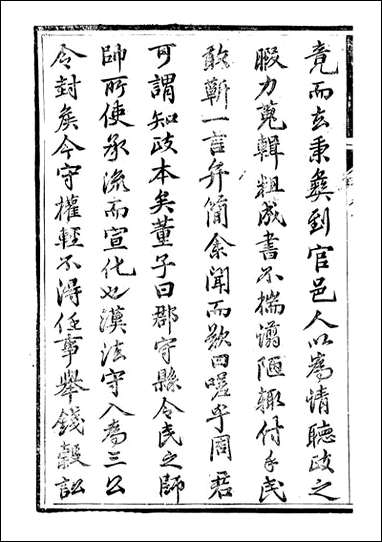 竟而去秉彝到官邑人以為請聽政之
暇力蒐輯粗成書不揣譾陋輒付手民
敢蘄一言弁簡余聞而歎曰嗟乎周君
可謂知政本矣董子曰郡守縣令民之師
帥所使承流而宣化也漢法守入為三公
令封矦今守權輕不得任事舉錢穀訟